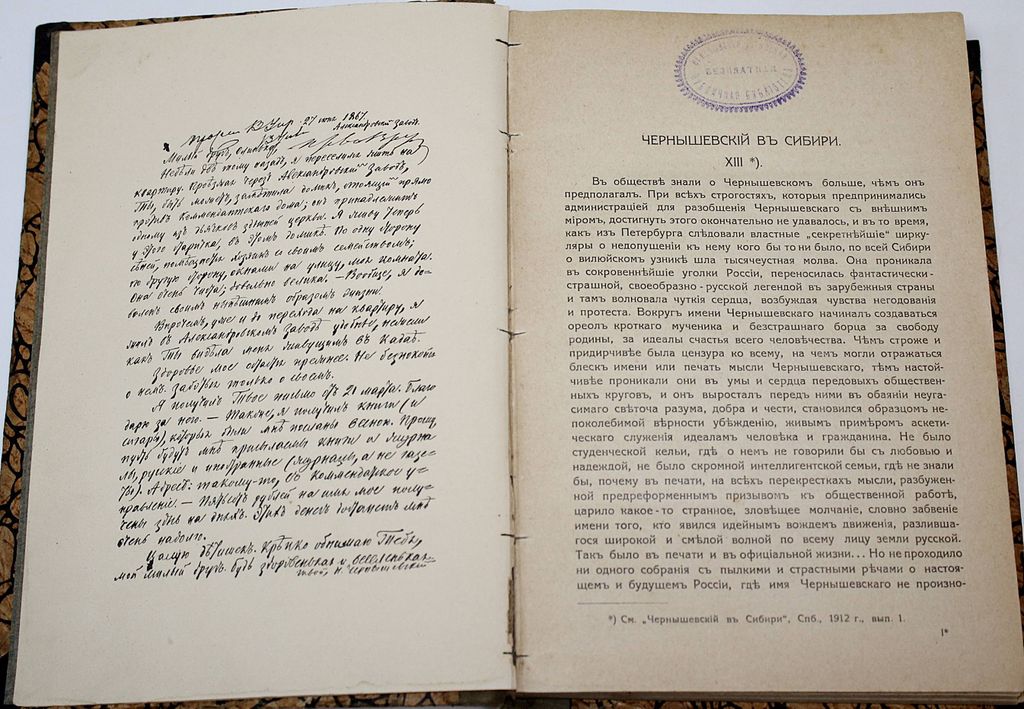 27 июня 1867.
Александровскій Заводъ.
Милый другъ,
Недѣли двѣ тому назадъ, я переселился жить на
квартиру. Проѣзжая черезъ Александровскій Заводъ,
Ты, быть можетъ, замѣтила домикъ, стоящій прямо
противъ Коммендантскаго дома; онъ принадлежитъ
одному изъ дьячковъ здѣшней церкви. Я живу теперь
у этого дьячка, въ этомъ домикѣ. По одну сторону
сѣней, помѣщается хозяинъ со своимъ семействомъ;
по другую сторону, окнами на улицу, моя комната.
Она очень чиста; довольно велика. — Вообще, я до-
воленъ своимъ нынѣшнимъ образомъ жизни.
Впрочемъ, уже и до перехода на квартиру, я
жилъ въ Александровскомъ Заводѣ удобнѣе, нежели
какъ Ты видѣла меня живущимъ въ Кадаѣ.
Здоровье мое остается прежнее. Не безпокойся
о немъ. Заботься только о своемъ.
Я получилъ Твое письмо отъ 21 марта. Благо
дарю за него. — Также, я получилъ книги (и
сигары), которыя были мнѣ посланы весною. Прошу,
пусть будутъ мнѣ присылаемы книги и журна
лы, русскіе и иностранные (журналы, а не газе-
ты). Адресъ: такому-то, въ Коммендантское у-
правленіе. — рублей на имя мое полу-
чены здѣсь на дняхъ. Этихъ денегъ достанетъ мнѣ
очень надолго.
Цалую дѣтишекъ. Крѣпко обнимаю Тебя,
мой милый другъ. Будь здоровенькая и веселенькая.
Твой Н. Чернышевскій
БЕЗПЛАТНАЯ
ЧЕРНЫШЕВСКІЙ ВЪ СИБИРИ.
XIII *).
Въ обществѣ знали о Чернышевскомъ больше, чѣмъ онъ
предполагалъ. При всѣхъ строгостяхъ, которыя предпринимались
администраціей для разобщенія Чернышевскаго съ внѣшнимъ
міромъ, достигнуть этого окончательно не удавалось, и въ то время,
какъ изъ Петербурга слѣдовали властные „секретнѣйшіе“ цирку-
ляры о недопущеніи къ нему кого бы то ни было, по всей Сибири
о вилюйскомъ узникѣ шла тысячеустная молва. Она проникала
въ сокровеннѣйшіе уголки Россіи, переносилась фантастически-
страшной, своеобразно-русской легендой въ зарубежныя страны
и тамъ волновала чуткія сердца, возбуждая чувства негодованія
и протеста. Вокругъ имени Чернышевскаго начиналъ создаваться
ореолъ кроткаго мученика и безстрашнаго борца за свободу
родины, за идеалы счастья всего человѣчества. Чѣмъ строже и
придирчивѣе была цензура ко всему, на чемъ могли отражаться
блескъ имени или печать мысли Чернышевскаго, тѣмъ настой-
чивѣе проникали они въ умы и сердца передовыхъ обществен-
ныхъ круговъ, и онъ выросталъ передъ ними въ обаяніи неуга-
симаго свѣточа разума, добра и чести, становился образцомъ не-
поколебимой вѣрности убѣжденію, живымъ примѣромъ аскети-
ческаго служенія идеаламъ человѣка и гражданина. Не было
студенческой кельи, гдѣ о немъ не говорили бы съ любовью и
надеждой, не было скромной интеллигентской семьи, гдѣ не знали
бы, почему въ печати, на всѣхъ перекресткахъ мысли, разбужен-
ной предреформеннымъ призывомъ къ общественной работѣ,
царило какое-то странное, зловѣщее молчаніе, словно забвеніе
имени того, кто явился идейнымъ вождемъ движенія, разлившa-
гося широкой и смѣлой волной по всему лицу земли русской.
Такъ было въ печати и въ офиціальной жизни... Но не проходило
ни одного собранія съ пылкими и страстными рѣчами о настоя-
щемъ и будущемъ Россіи, гдѣ имя Чернышевскаго не произно-
*) См. „Чернышевскій въ Сибири“, Спб., 1912 г., вып. 1.
1*